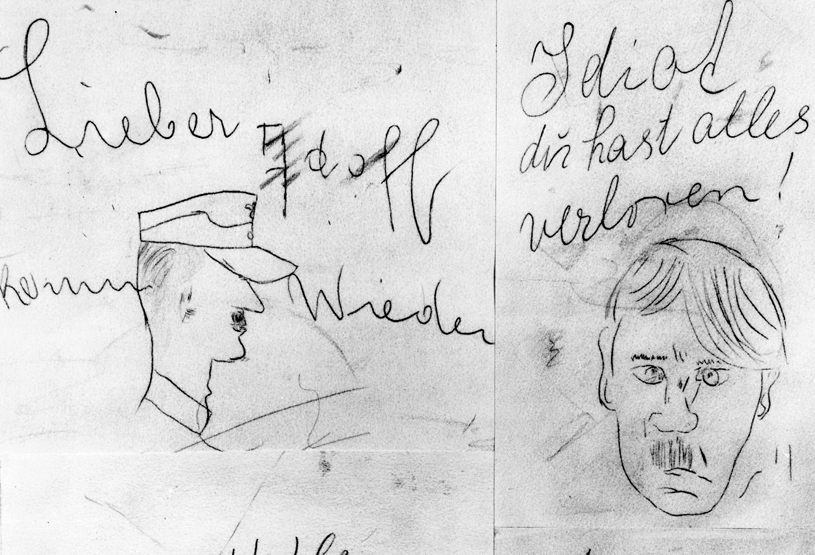 Lieber
Adolf
komm Wieder
Idiot
du hast alles
verloren!